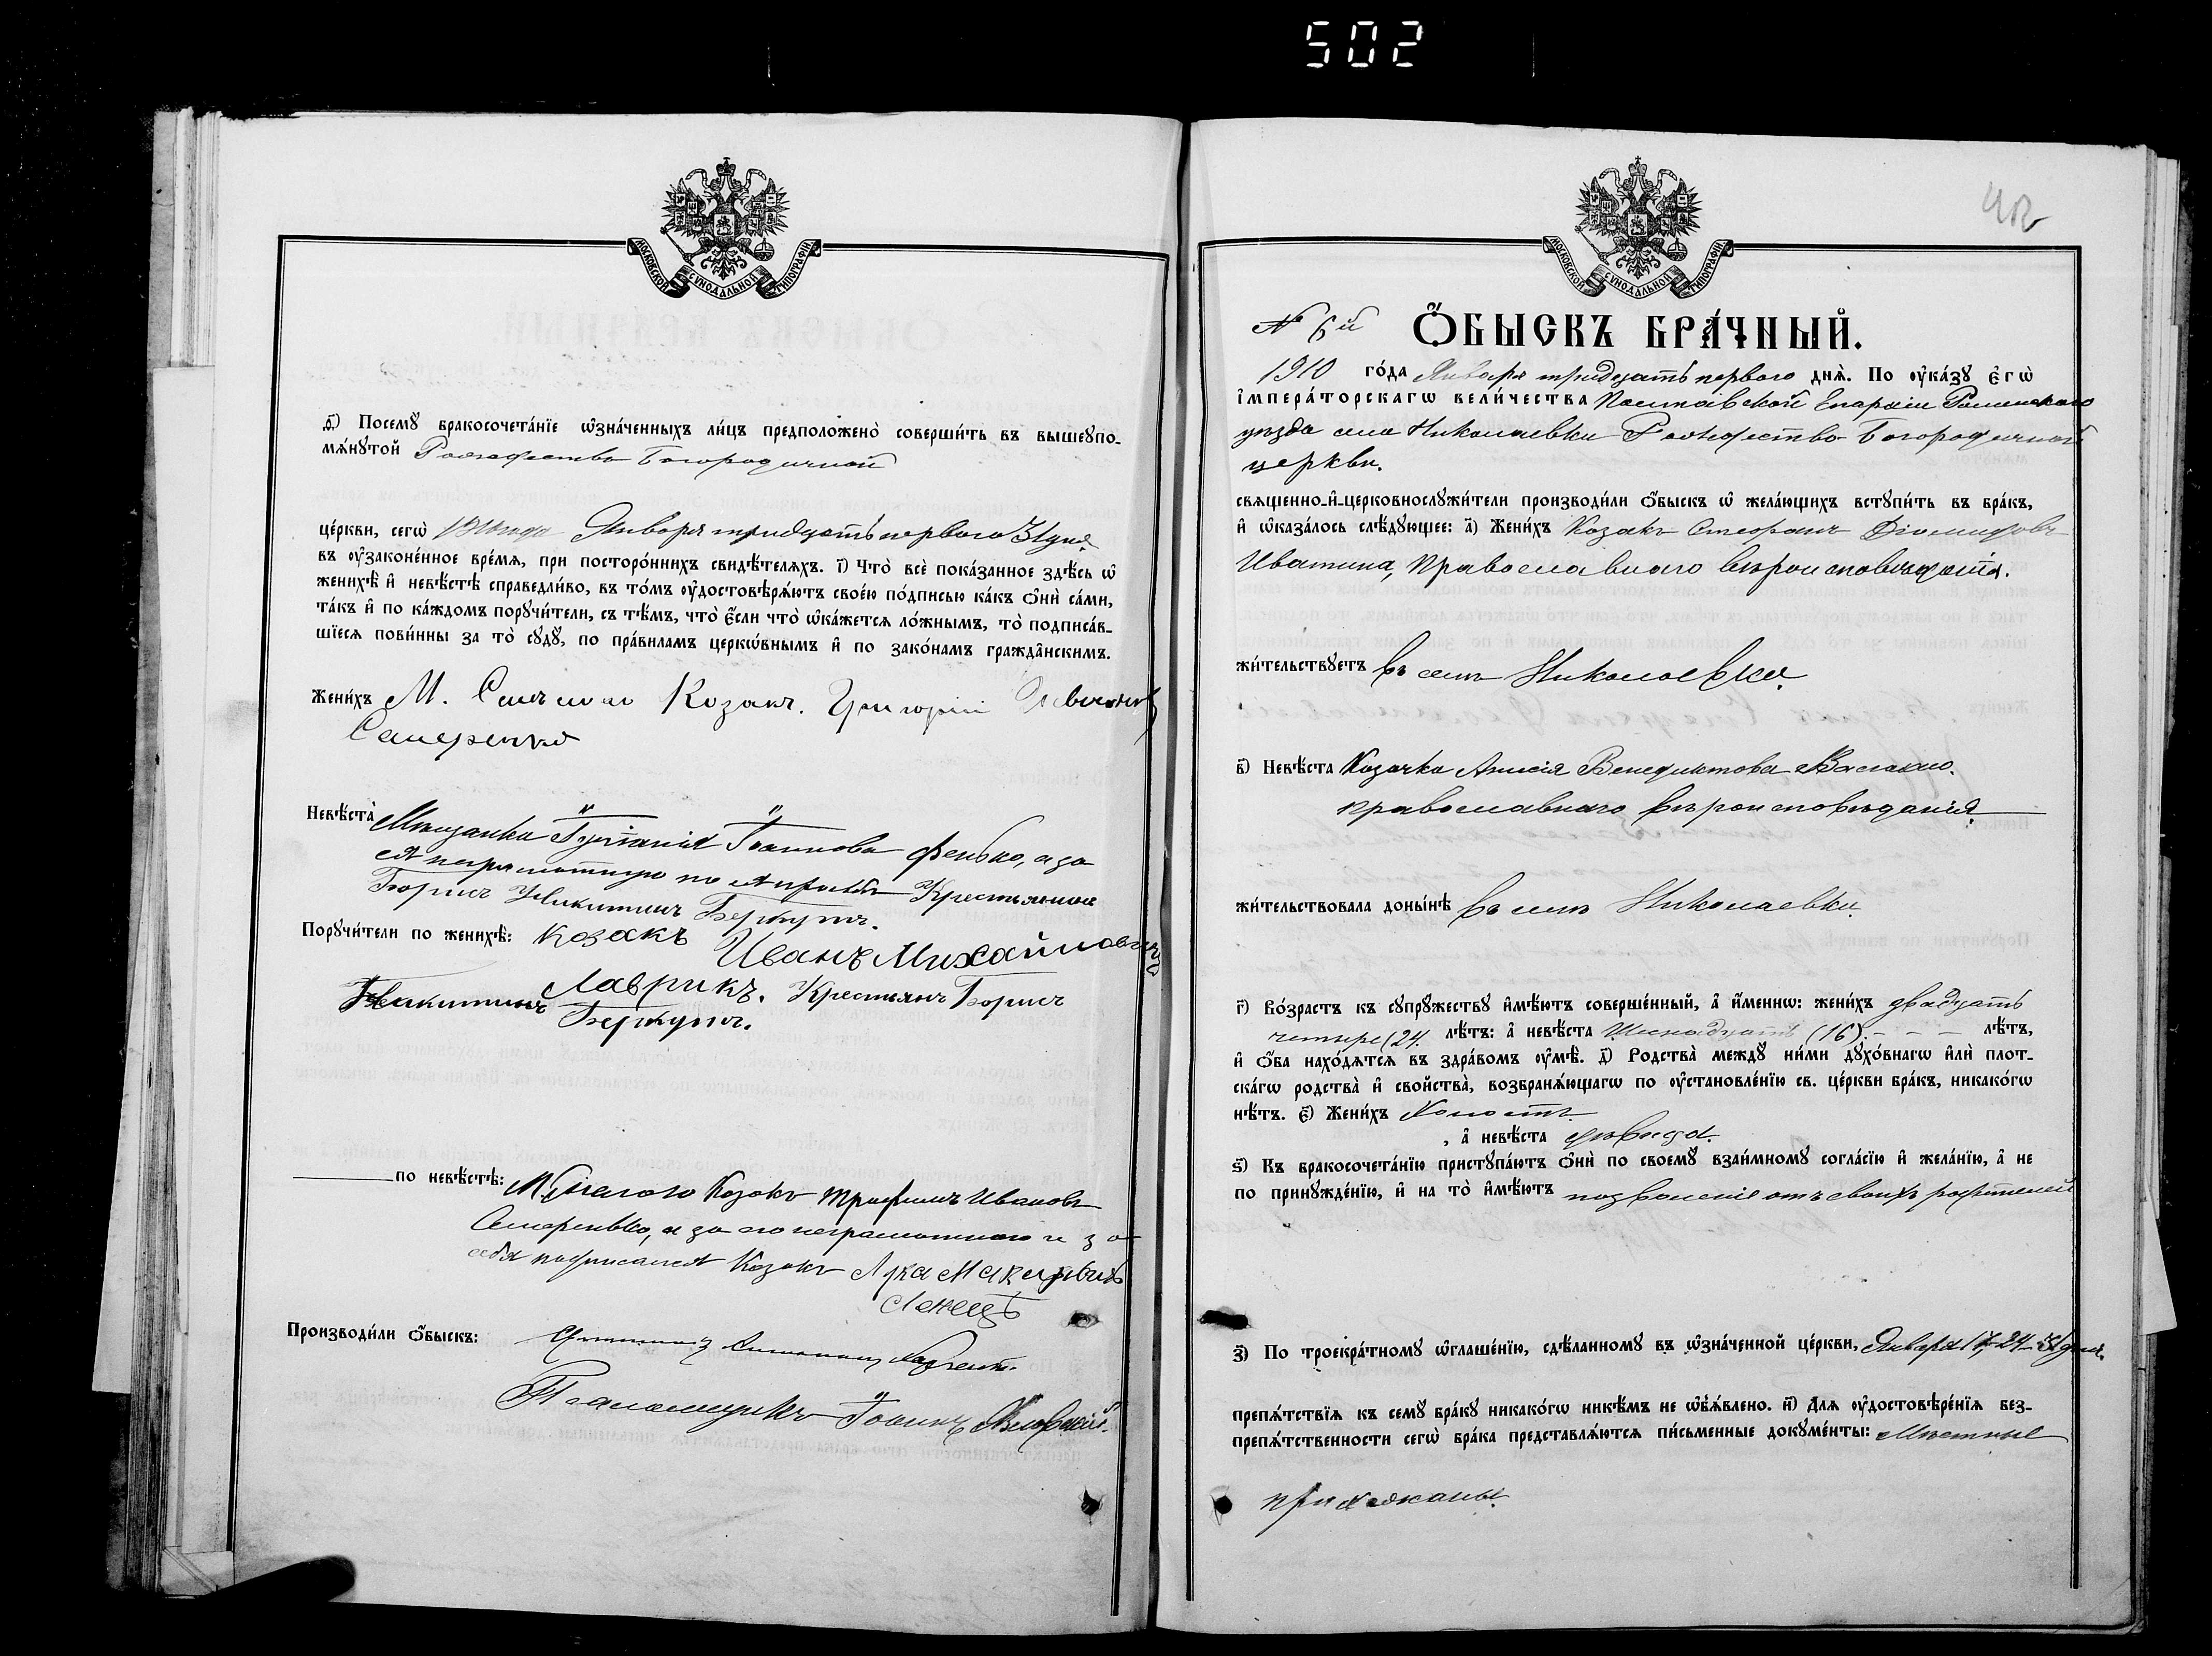 502
МОСКОВСКОЙ СѴНОДАЛЬНОЙ ТИПОГРАФІИ
д҃) Посемꙋ̀ бракосочета́нїе ѡ҆зна́ченныхъ ли́цъ предположено̀ соверши́ть въ вышеꙋпо-
мѧ́нꙋтой Рождество-Богородичной
це́ркви, сегѡ̀ 1910 года Января тридцать первого 31 дня
въ ᲂу҆зако́ненное вре́мѧ, при посторо́ннихъ свидѣ́телѧхъ. і҃) Что̀ всѐ пока́занное здѣ́сь ѡ҆
женихѣ̀ и҆ невѣ́стѣ справедли́во, въ то́мъ ᲂу҆достовѣрѧ́ютъ свое́ю по́дписью ка́къ ѻ҆нѝ са́ми,
та́къ и҆ по ка́ждомъ порꙋчи́тели, съ тѣ́мъ, что̀ є҆́сли что̀ ѡ҆ка́жетсѧ ло́жнымъ, то̀ подписа́в-
шїесѧ пови́нны за то̀ сꙋдꙋ̀, по пра́виламъ церкѡ́внымъ и҆ по зако́намъ гражда́нскимъ.
Жени́хъ М. Козакъ. Григорій
Семеренко
Невѣ́ста Мѣщанка Іуліанія Іоаннова Фенько, а за
ея неграмотную по ея просьбѣ Крестьянинъ
Никитинъ Беркунъ.
Порꙋчи́тели по женихѣ̀: козакъ Иванъ Михайловичъ
Лаврикъ. Крестьянъ
Никитинъ Беркунъ.
по невѣ́стѣ: Козакъ Трофимъ Ивановъ
Семеренко, а за его неграмотного и за
себя подписался Козакъ
Производи́ли ѻ҆́быскъ:
Псаломщикъ Іоаннъ
МОСКОВСКОЙ СѴНОДАЛЬНОЙ ТИПОГРАФІИ
42
№ 6й Ѻ҆́БЫСКЪ БРА́ЧНЫЙ.
1910 го́да Января тридцать первого днѧ̀. По ᲂу҆ка́зꙋ Є҆гѡ̀
І҆мпера́торскагѡ Вели́чества Полтавской Епархіи Роменского
уѣзда села Николаевки Рождество-Богородичной
церкви.
свѧщенно-и҆-церковнослꙋжи́тели производи́ли ѻ҆́быскъ ѡ҆ жела́ющихъ встꙋпи́ть въ бра́къ,
и҆ ѡ҆каза́лось слѣ́дꙋющее: а҃) Жени́хъ Козакъ Стефанъ Діомидовъ
Ивашина, православнаго вѣроисповѣданія.
жи́тельствꙋетъ въ селѣ Николаевкѣ.
в҃) Невѣ́ста Козачка Анисія Венедиктова
православнаго вѣроисповѣданія.
жи́тельствовала доны́нѣ въ селѣ Николаевкѣ.
г҃) Во́зрастъ къ сꙋпрꙋ́жествꙋ и҆мѣ́ютъ соверше́нный, а҆ и҆́меннѡ: жени́хъ двадцать
четыре (24. лѣ́тъ: а҆ невѣ́ста Шеснадцать (16). - - - лѣ́тъ,
и҆ ѻ҆́ба нахо́дѧтсѧ въ здра́вомъ ᲂу҆мѣ̀. д҃) Родства̀ междꙋ̀ ни́ми дꙋхо́внагѡ и҆лѝ плот-
ска́гѡ родства̀ и҆ свойства̀, возбранѧ́ющагѡ по ᲂу҆становле́нїю св. це́ркви бра́къ, никако́гѡ
нѣ́тъ. є҃) Жени́хъ Холостъ
, а҆ невѣ́ста дѣвица.
ѕ҃) Къ бракосочета́нїю пристꙋпа́ютъ ѻ҆нѝ по своемꙋ̀ взаи́мномꙋ согла́сїю и҆ жела́нїю, а҆ не
по принꙋжде́нїю, и҆ на то̀ и҆мѣ́ютъ позволеніе отъ своихъ родителей
з҃) По троекра́тномꙋ ѡ҆глаше́нїю, сдѣ́ланномꙋ въ ѡ҆зна́ченной це́ркви, Января 17, 24 31 дня.
препѧ́тствїѧ къ семꙋ̀ бра́кꙋ никако́гѡ никѣ́мъ не ѡ҆б̾ѧ́влено. и҃) Длѧ ᲂу҆достовѣре́нїѧ без-
препѧ́тственности сегѡ̀ бра́ка представлѧ́ютсѧ пи́сьменные докꙋме́нты: Мѣстные
прихожаны.